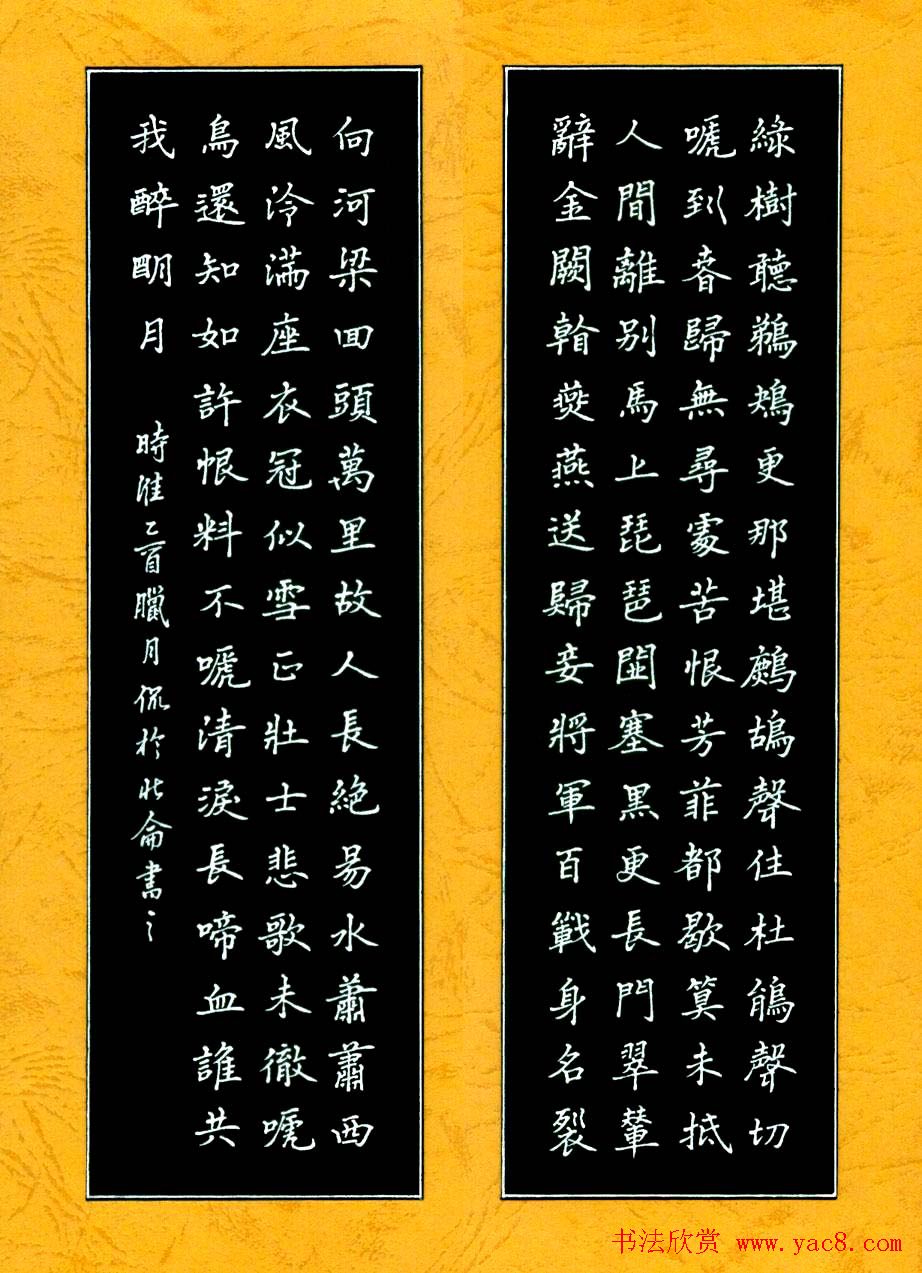 綠樹聽鵜鴂更那堪鷓鴣聲住杜鵑聲切
嗁到春歸無尋處苦恨芳菲都歇算未抵
人間離別馬上琵琶關塞黑更長門翠輦
辭金闕看燕燕送歸妾將軍百戰身名裂
向河梁回頭萬里故人長絕易水蕭蕭西
風泠滿座衣冠似雪正壯士悲歌未徹嗁
鳥還知如許恨料不嗁清淚長啼血誰共
我醉明月
時維乙酉臘月侃於北侖書之
书法欣赏 www.yac8.com